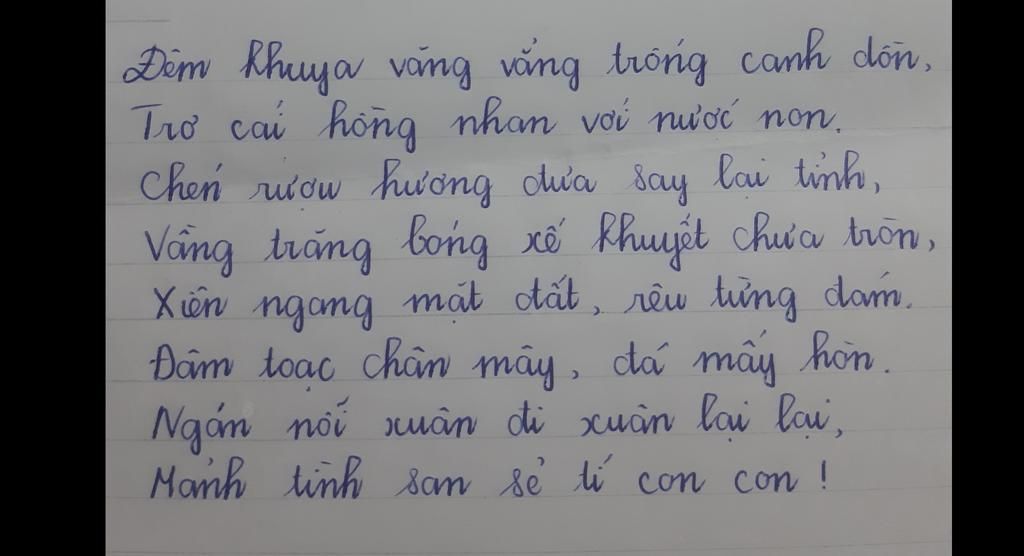 Đêm khuya văng vẳng trống canh dồn,
Trơ cái hồng nhan với nước non.
Chén rượu hương đưa say lại tỉnh,
Vầng trăng bóng xế khuyết chưa tròn,
Xiên ngang mặt đất, rêu từng đám.
Đâm toạc chân mây, đá mấy hòn.
Ngán nỗi xuân đi xuân lại lại,
Mảnh tình san sẻ tí con con !